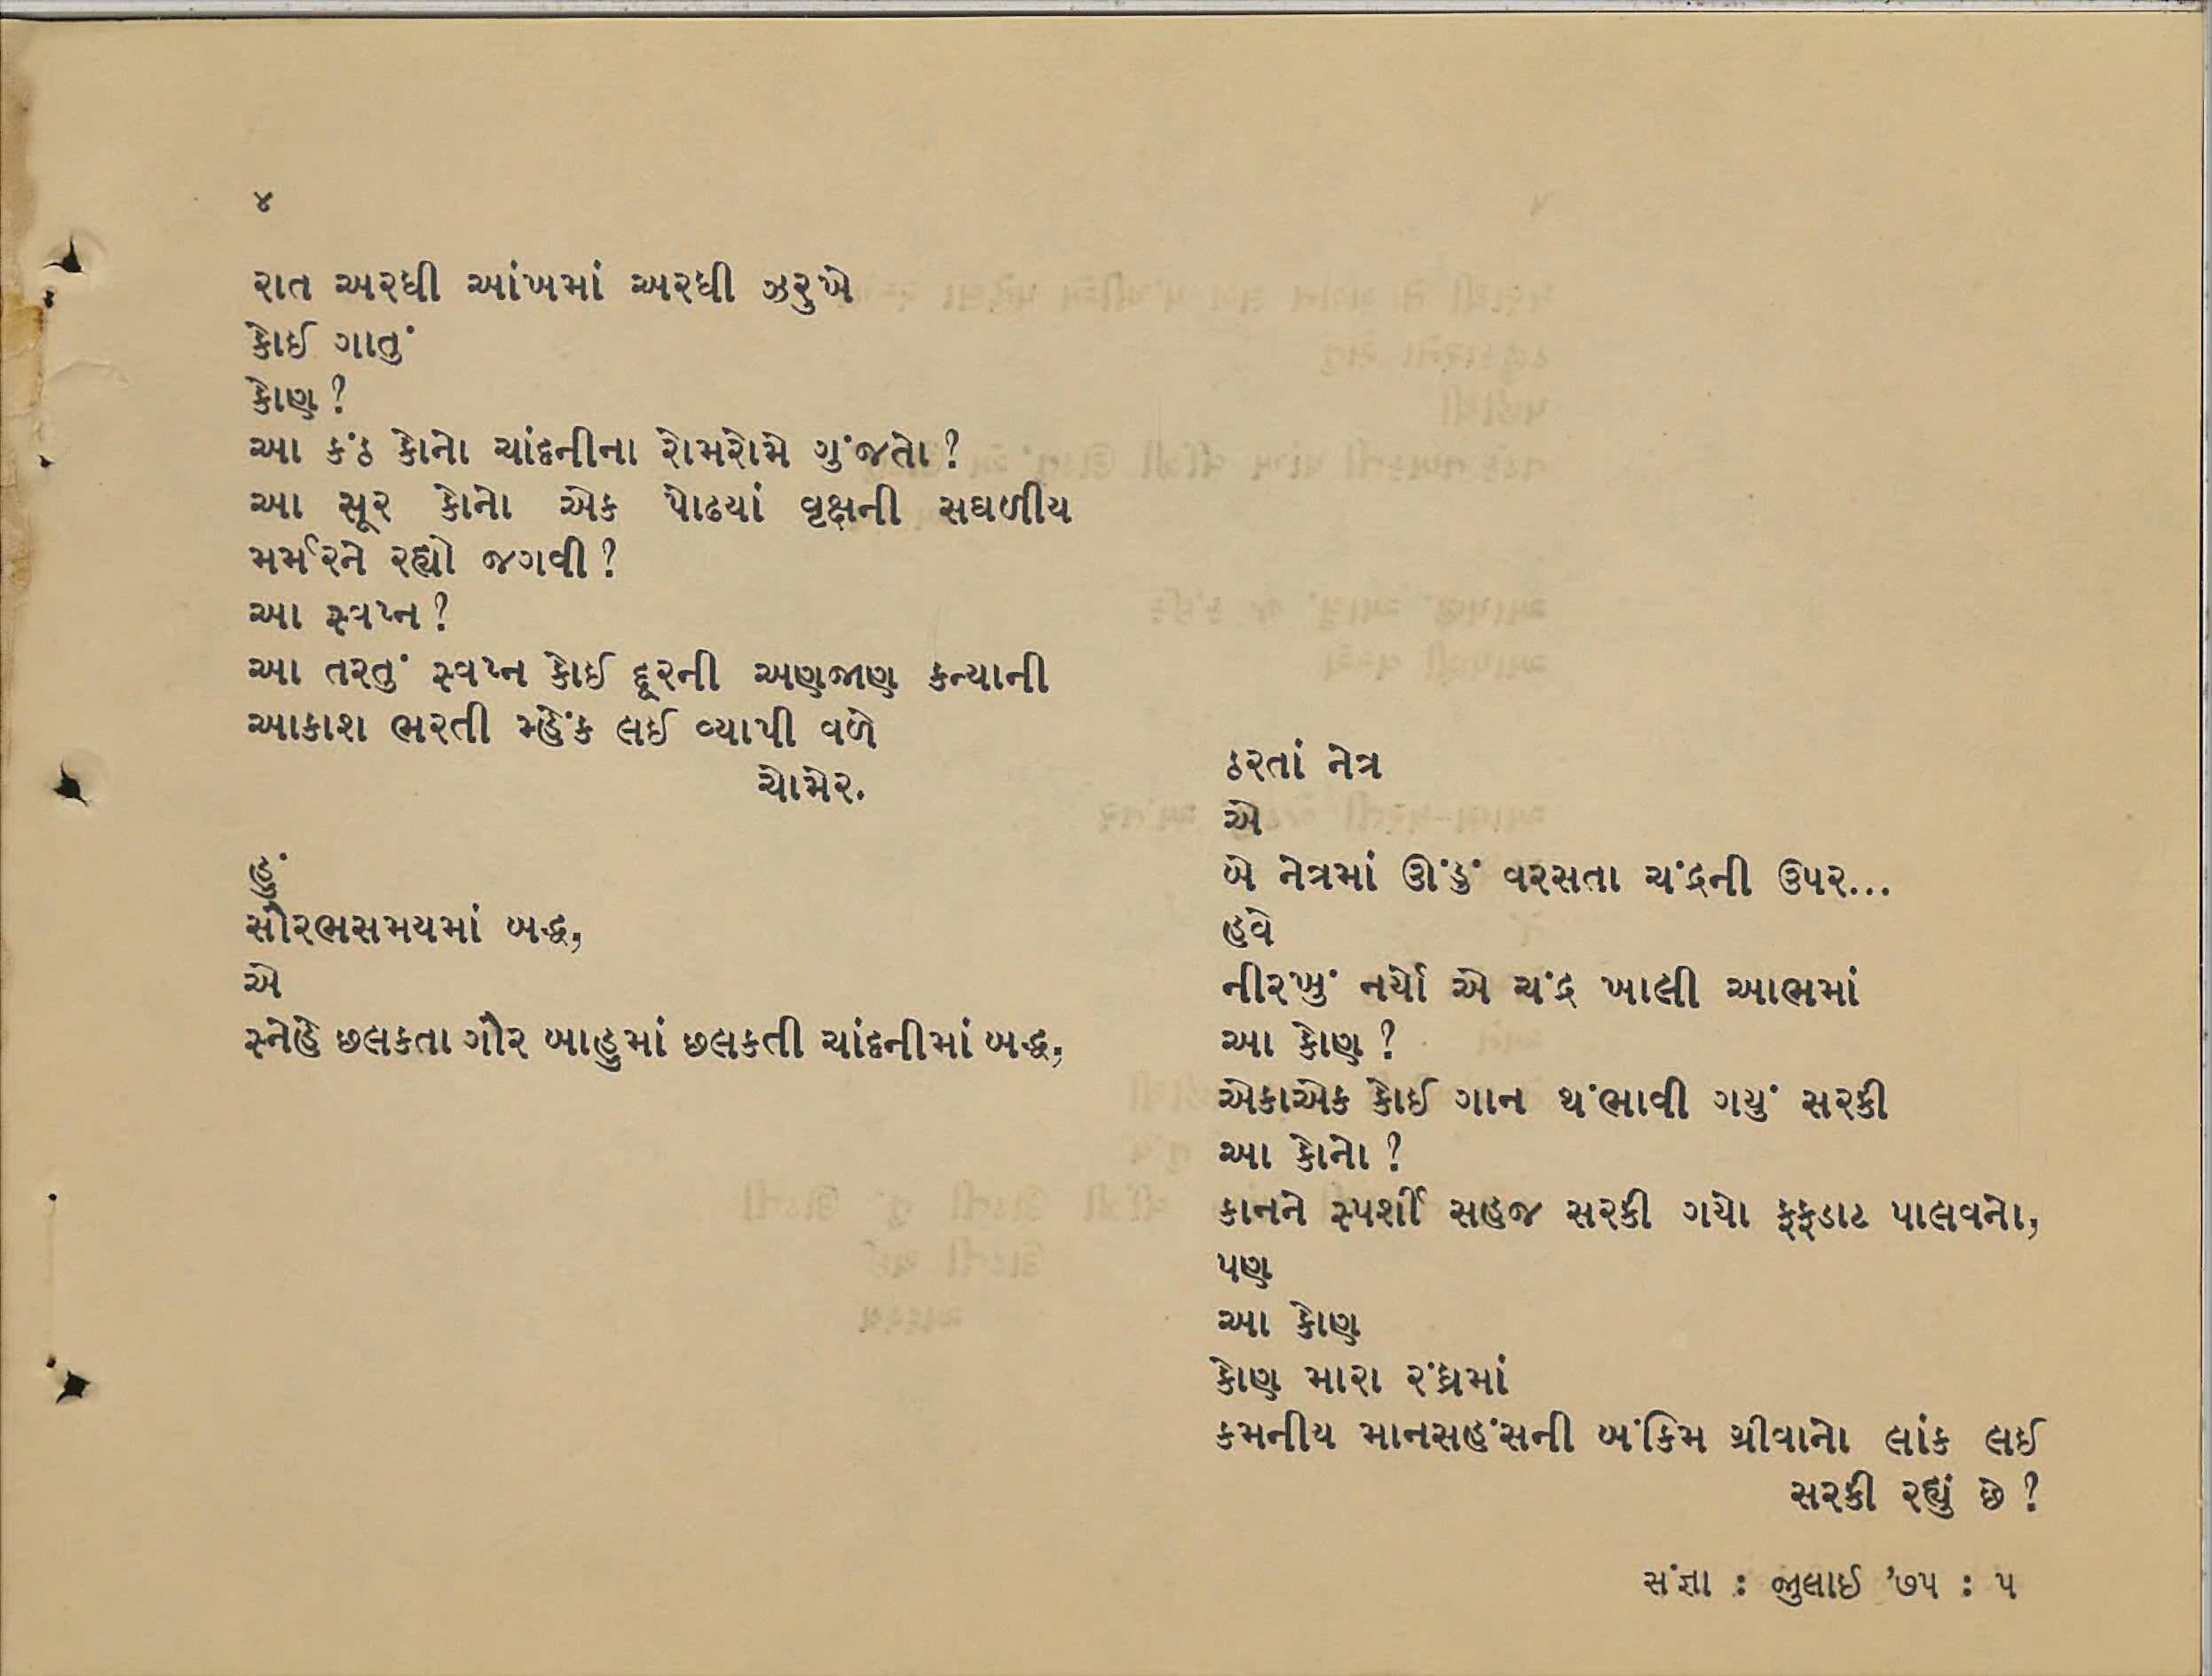 ૪
રાત અરધી આંખમાં અરધી ઝરુખે
કોઈ ગાતું
કોણ ?
આ કંઠ કોનો ચાંદનીના રોમરોમે ગુંજતો ?
આ સૂર કોનો એક પોઢયાં વૃક્ષની સઘળીય
મર્મરને રહ્યો જગવી ?
આ સ્વપ્ન ?
આ તરતું સ્વપ્ન કોઈ દૂરની અણજાણ કન્યાની
આકાશ ભરતી મ્હેંક લઈ વ્યાપી વળે
ચોમેર.
હું
સૌરભસમયમાં બદ્ધ,
એ
સ્નેહે છલકતા ગૌર બાહુમાં છલકતી ચાંદનીમાં બદ્ધ;
ઠરતાં નેત્ર
એ
બે નેત્રમાં ઊંડું વરસતા ચંદ્રની ઉપર...
હવે
નીરખું નર્યો એ ચંદ્ર ખાલી આભમાં
આ કોણ ?
એકાએક કોઈ ગાન થંભાવી ગયું સરકી
આ કોનો ?
કાનને સ્પર્શી સહજ સરકી ગયો ફફડાટ પાલવનો,
પણ
આ કોણ
કોણ મારા રંધ્રમાં
કમનીય માનસહંસની બંકિમ ગ્રીવાનો લાંક લઈ
સરકી રહ્યું છે ?
સંજ્ઞા : જુલાઈ '૭૫ : ૫